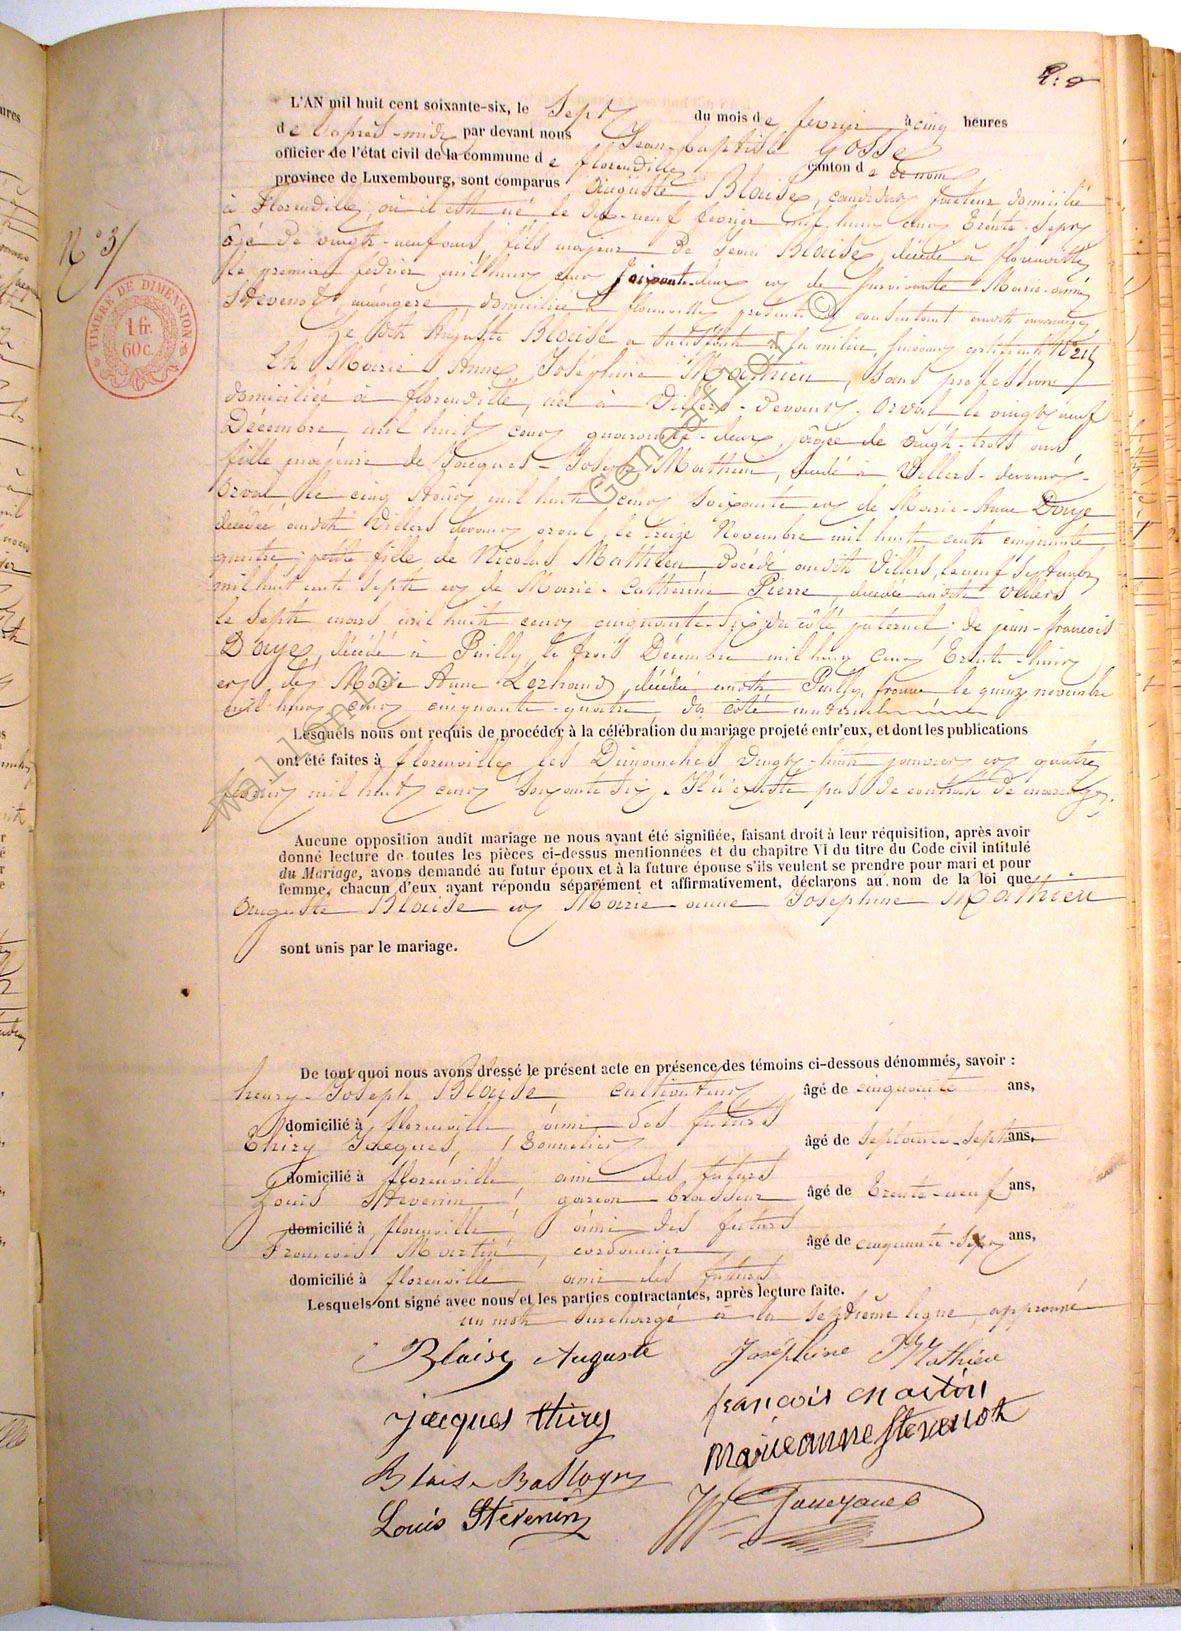 L'AN mil huit cent soixante-six, le Sept du mois de février à cinq heures
de l'après-midi par devant nous Jean-baptiste Gosse
officier de l'état civil de la commune de florenville canton de ce nom
province de Luxembourg, sont comparus Auguste Blaise, facteur domicilié
à Florenville, où il est né le dix-neuf février mil huit cent trente-sept
âgé de vingt-neuf ans, fils majeur de Jean Blaise, décédé à florenville
le premier février mil huit cent soixante-deux et de Marie-anne
Stevenot, ménagère, domiciliée à florenville présente et consentant audit mariage
Le dit Auguste Blaise a satisfait à la milice, suivant certificat
Et Marie Anne Joséphine Mathieu, sans profession
domiciliée à florenville, née à Villers-devant-Orval le vingt neuf
Décembre mil huit cent quarante-deux, âgée de vingt-trois ans
fille majeure de Jacques-Joseph Mathieu, décédé à Villers-devant-
orval le cinq Août mil huit cent soixante et de Marie-Anne Daye
décédée audit Villers devant orval, le treize Novembre mil huit cent cinquante
quatre, petite fille de Nicolas Mathieu, décédé audit Villers, le neuf Septembre
mil huit cent sept et de Marie-Catherine Pierre, décédée audit Villers
le sept mars mil huit cent cinquante-six du côté paternel; de jean-françois
Daye, décédé à Puilly le trois Décembre mil huit cent trente-huit
et de Marie Anne décédée audit Puilly, france le quinze novembre
mil huit cent cinquante-quatre du côté maternel
Lesquels nous ont requis de procéder à la célébration du mariage projeté entr'eux, et dont les publications
ont été faites à florenville les Dimanches vingt-huit janvier et quatre
février mil huit cent soixante six. Il n'existe pas de contrat de mariage.
Aucune opposition audit mariage ne nous ayant été signifiée, faisant droit à leur réquisition, après avoir
donné lecture de toutes les pièces ci-dessus mentionnées et du chapitre VI du titre du Code civil intitulé
du Mariage, avons demandé au futur époux et à la future épouse s'ils veulent se prendre pour mari et pour
femme, chacun d'eux ayant répondu séparément et affirmativement, déclarons au nom de la loi que
Auguste Blaise et Marie-anne Joséphine Mathieu
sont unis par le mariage.
De tout quoi nous avons dressé le présent acte en présence des témoins ci-dessous dénommés, savoir :
henry-Joseph Blaise cultivateur âgé de cinquante ans,
domicilié à florenville ami des futurs
Thiry Jacques, âgé de septante-sept ans,
domicilié à florenville, ami des futurs
Louis Stevenin, garçon brasseur âgé de trente-neuf ans,
domicilié à florenville, ami des futurs
François Martin, cordonnier âgé de cinquante-sept ans,
domicilié à florenville, ami des futurs
Lesquels ont signé avec nous et les parties contractantes, après lecture faite.
un mot surchargé à la septième ligne, approuvé
Blaise Auguste Joséphine Mathieu
Jacques thiry françois martin
marieanne Stevenot
Blaise
Louis Stevenin
N° 3
TIMBRE DE DIMENSION
1 fr.
60 c.
wallonia © Geneanet.lor